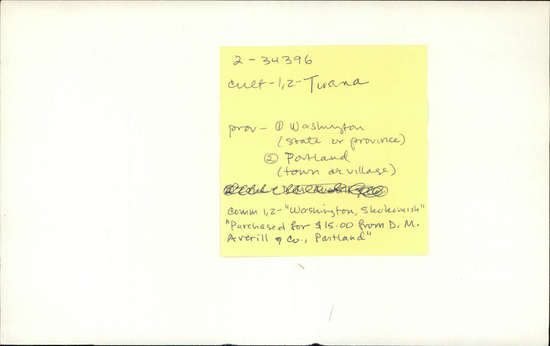 2-34396
cult-1,2-Twana
prov- ① Washington
(state or province)
② Portland
(town or village)
comm 1,2- "Washington, Skokomish"
"Purchased for $15.00 from D. M.
Averill & Co., Portland"